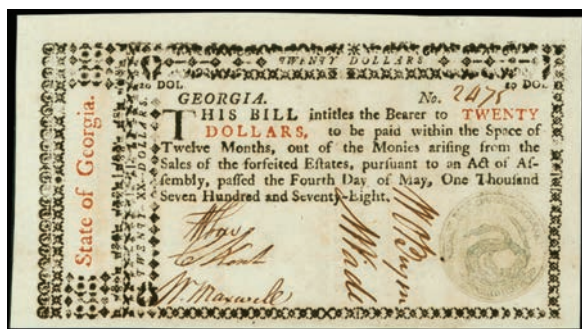 TWENTY DOLLARS
State of Georgia.
TWENTY-XX-DOLLARS.
20 DOL
20 DOL
GEORGIA. No. 2475
THIS BILL intitles the Bearer to TWENTY
DOLLARS, to be paid within the Space of
Twelve Months, out of the Monies arising from the
Sales of the forfeited Eſtates, purſuant to an Act of Aſ-
ſembly, paſſed the Fourth Day of May, One Thouſand
Seven Hundred and Seventy-Eight.
C Kent
Wm. Maxwell
N Wade